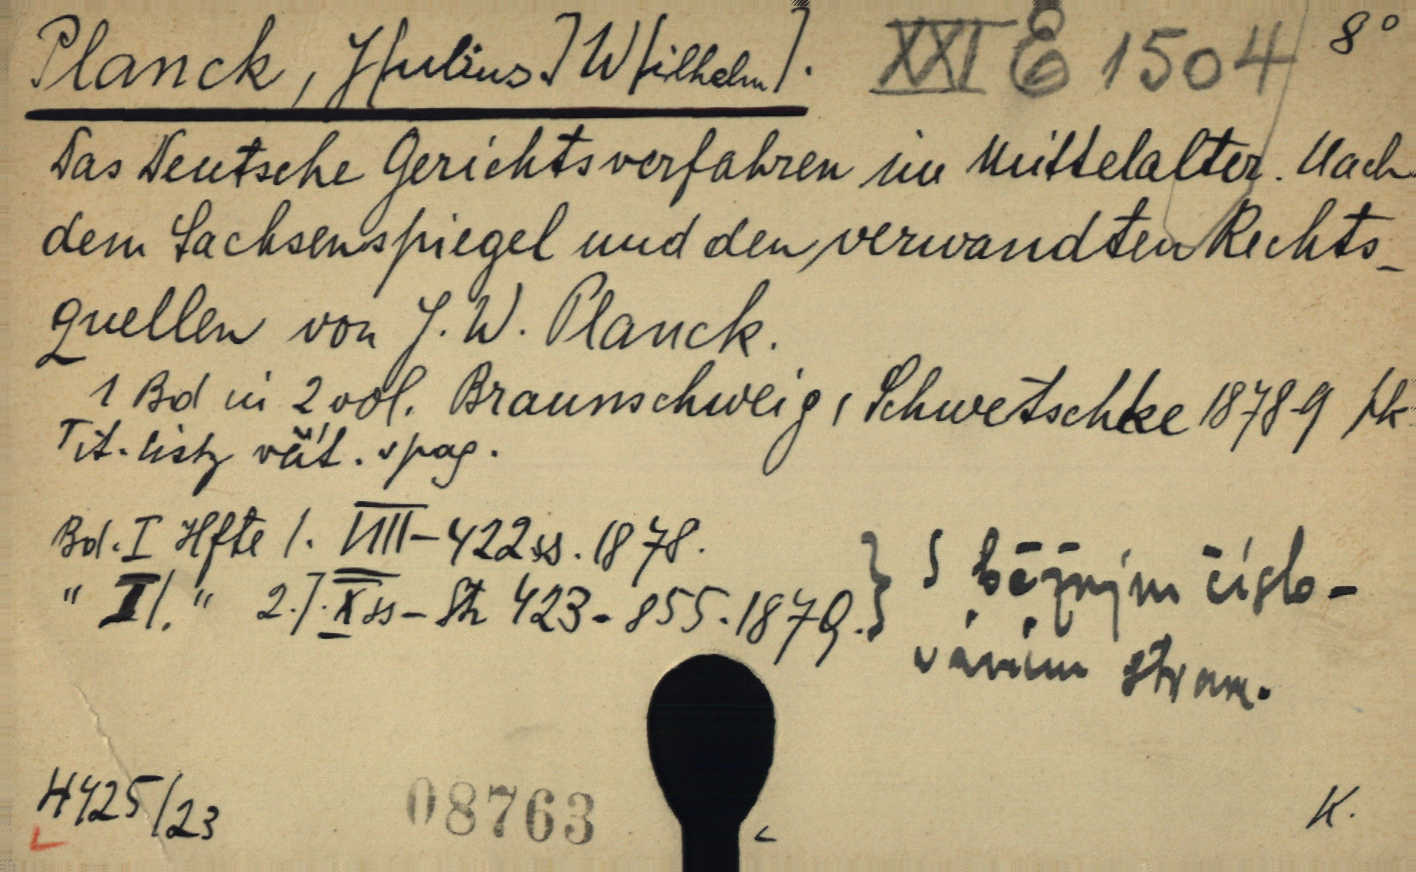 Planck, J[ulius] W[ilhelm]. XXI E 1504 8°
Das Deutsche Gerichtsverfahren im Mittelalter. Nach
dem Sachsenspiegel und den verwandten Rechts-
quellen von J. W. Planck.
1 Bd in 2 vol. Braunschweig, Schwetschke 1878-9 pk
Tit. listy vät. spag.
Bd. I Hfte 1. VIII-422 ss. 1878.
" II. " 2.]. X ss - Str 423-855. 1879. } S běžným číslo-
váním stran.
4425/23 08763 K.